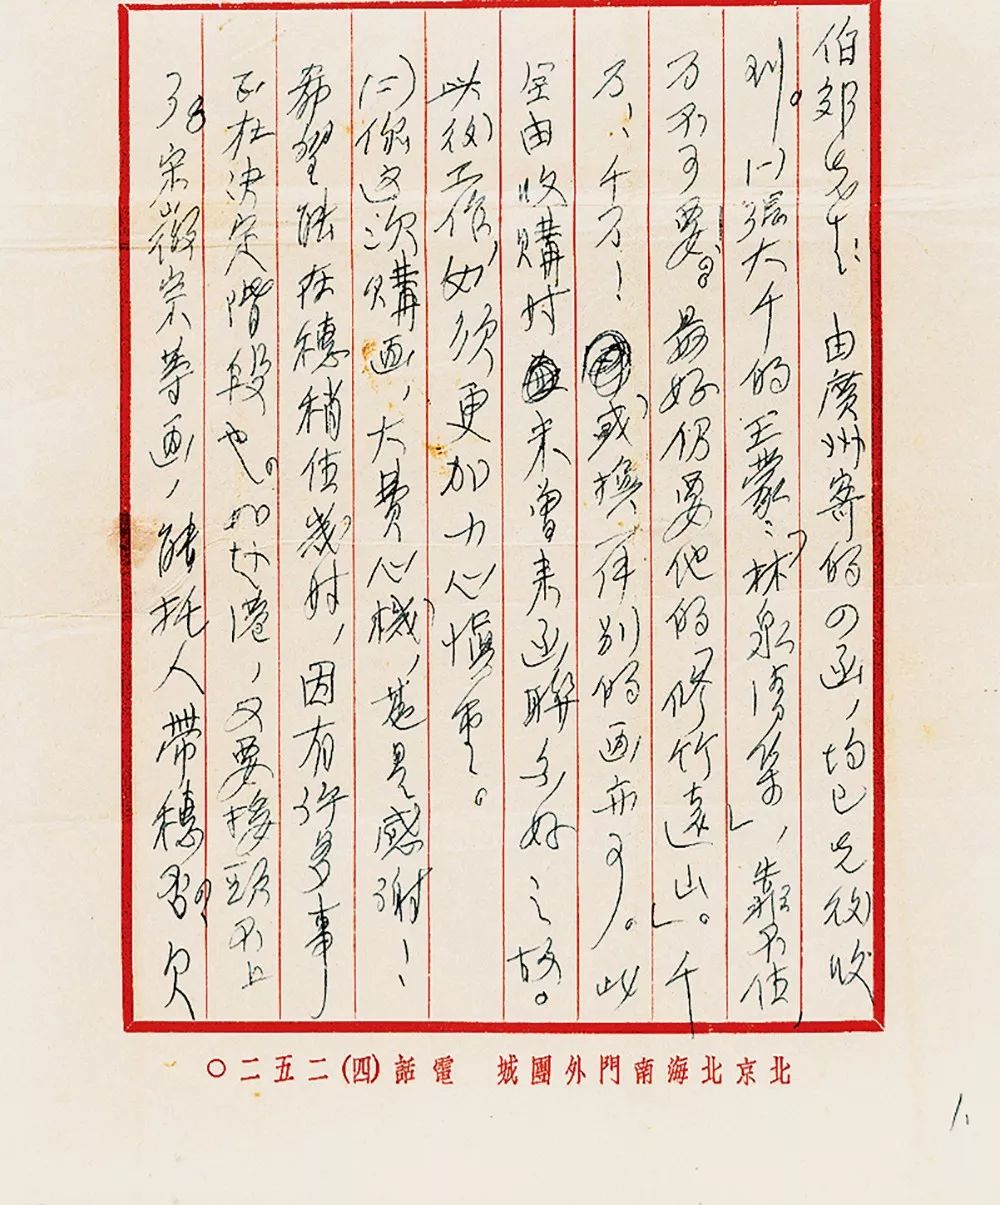 伯郊先生：由廣州寄的四函，均已先後收
到。(一)張大千的王蒙：「林泉清集」，靠不住，
万不可要。最好仍要他的「修竹遠山」。千
万！千万！或換一件别的画亦可。此
全由收購时未曾来函聯系好之故。
以後工作，必須更加小心慎重。
(二)你这次購画，大費心機，甚是感謝！
希望能在穗稍住幾时，因有许多事
正在决定階段也。如赴港，又要接頭不上
了。宋徽宗等画，能托人帶穗否？欠
北京北海南門外團城　電話(四)二五二〇
1.